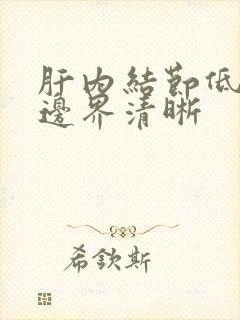 肝内結節低
邊界清晰
希欽斯